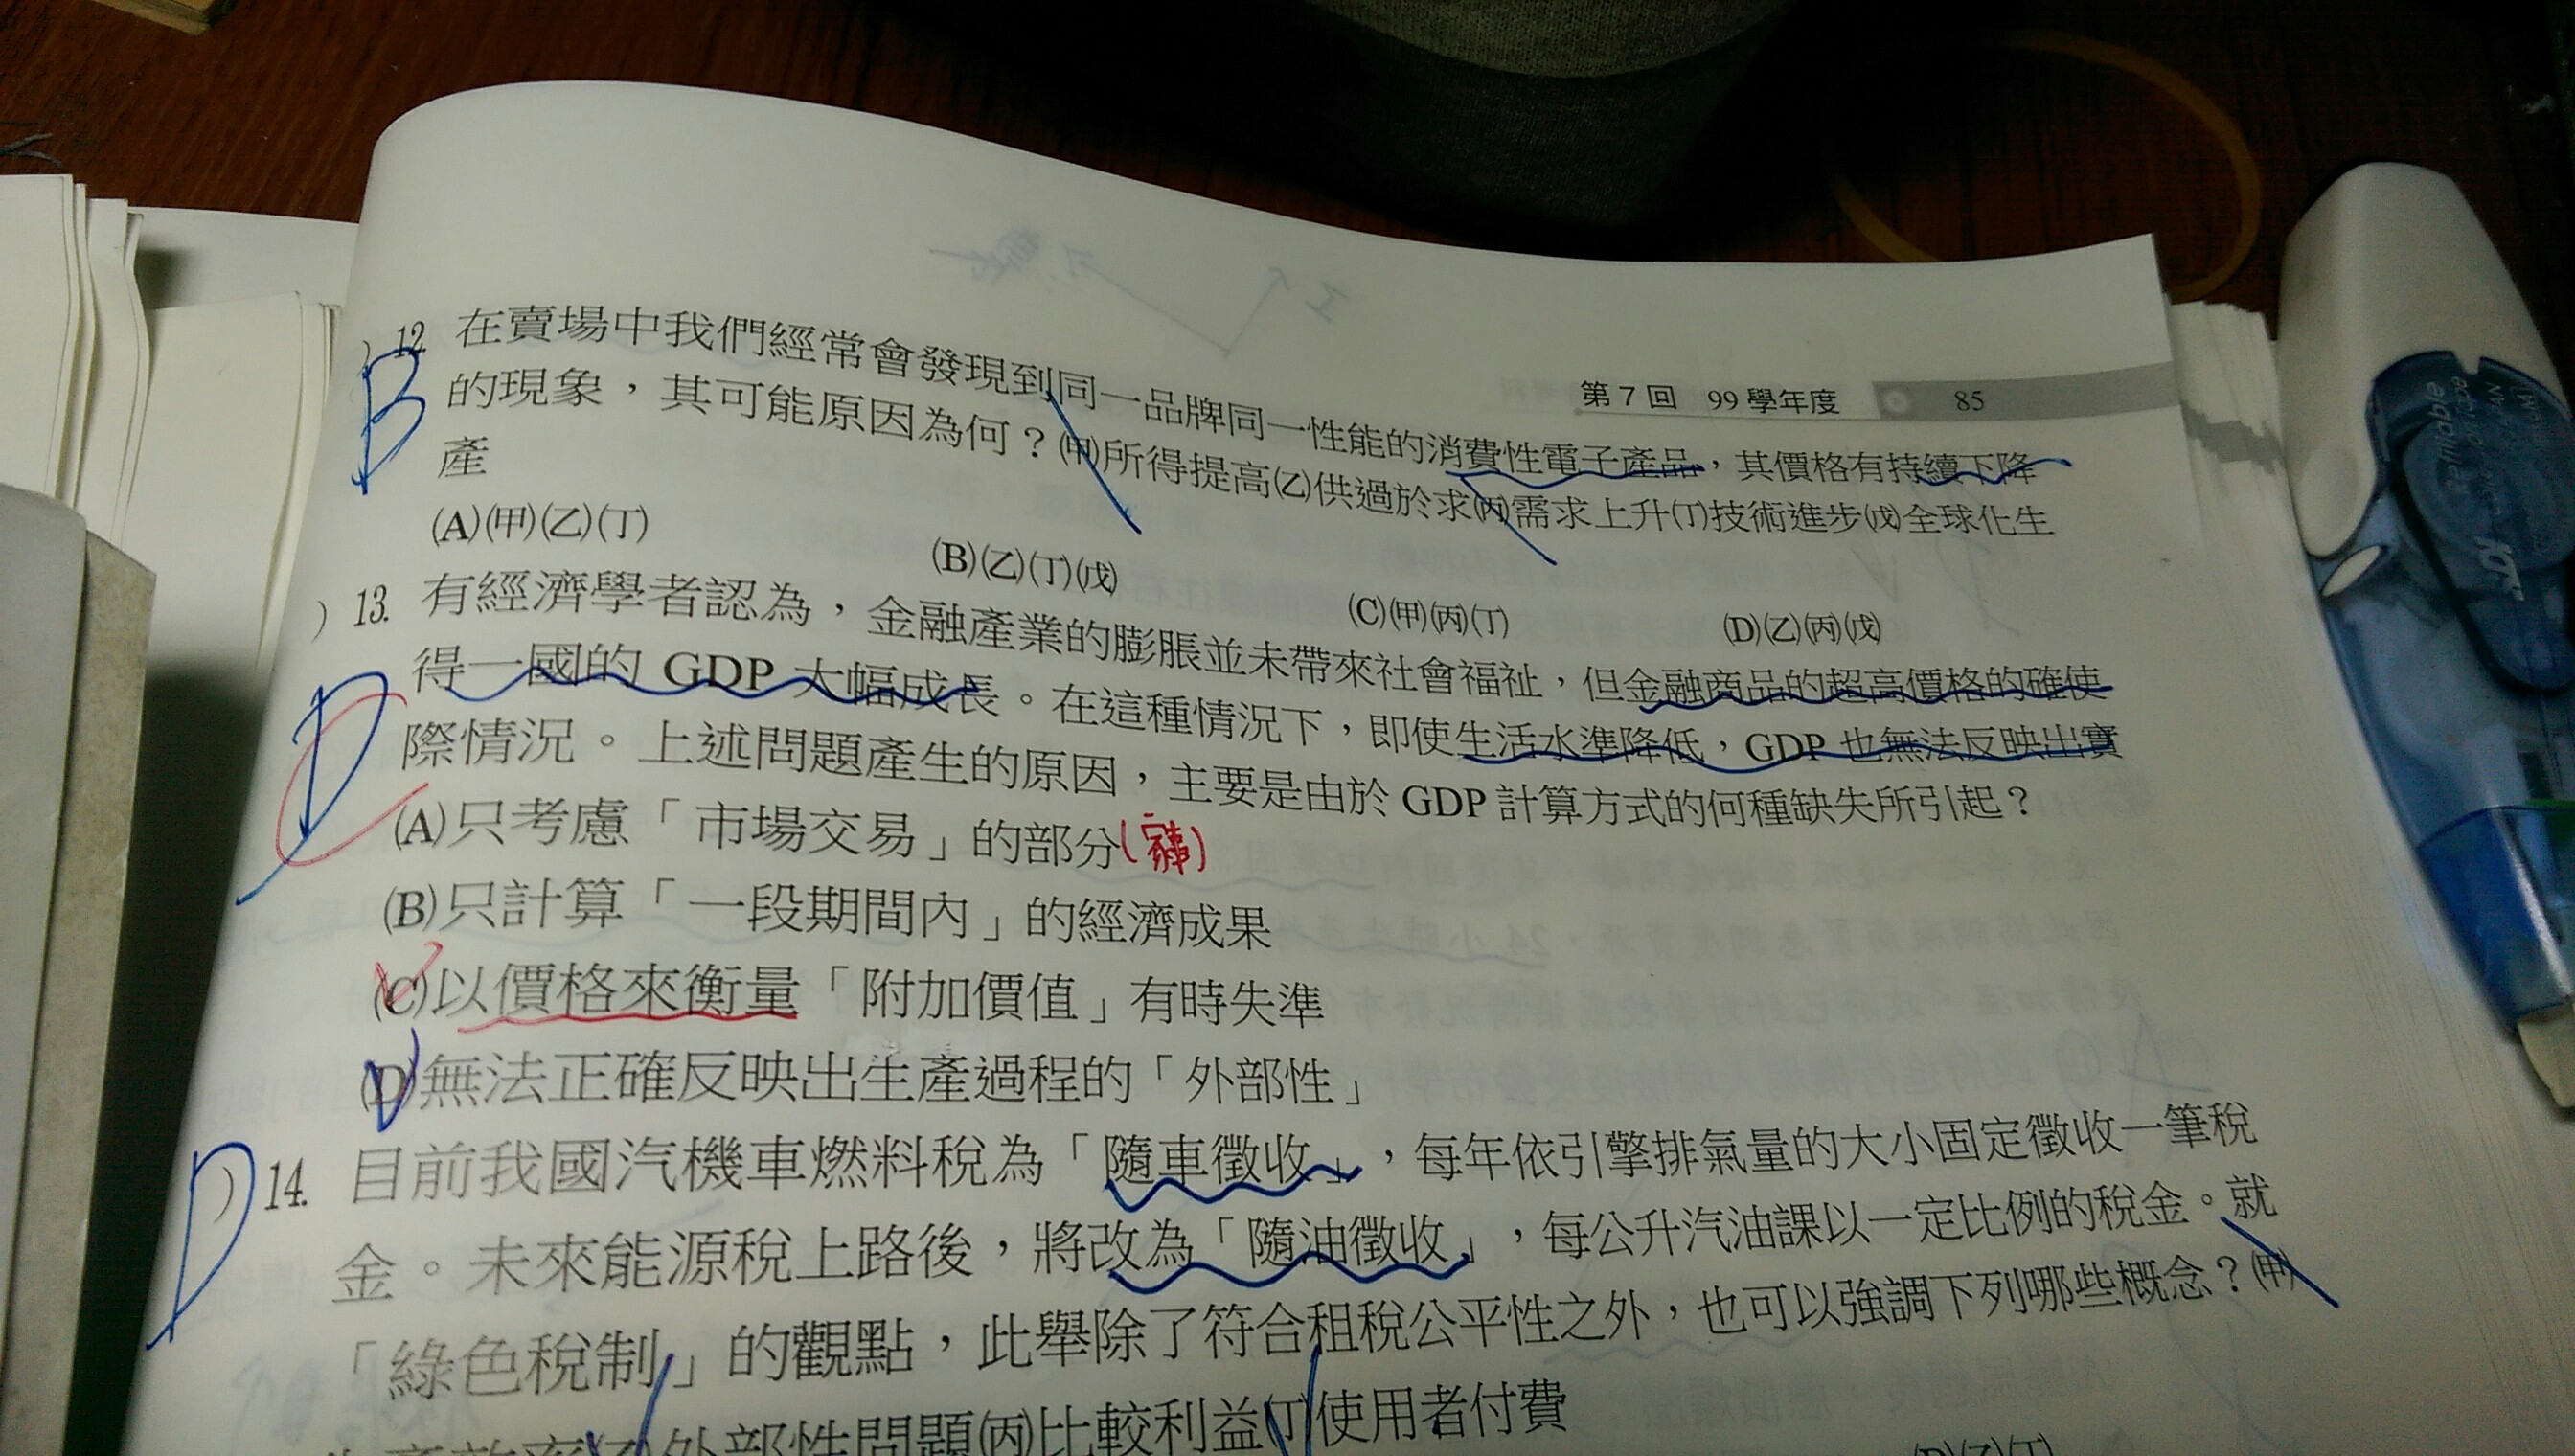 第7回 99學年度 85
B )12 在賣場中我們經常會發現到同一品牌同一性能的消費性電子產品，其價格有持續下降
的現象，其可能原因為何？(甲)所得提高(乙)供過於求(丙)需求上升(丁)技術進步(戊)全球化生
產
(A)(甲)(乙)(丁) (B)(乙)(丁)(戊) (C)(甲)(丙)(丁) (D)(乙)(丙)(戊)
D C )13. 有經濟學者認為，金融產業的膨脹並未帶來社會福祉，但金融商品的超高價格的確使
得一國的 GDP 大幅成長。在這種情況下，即使生活水準降低，GDP 也無法反映出實
際情況。上述問題產生的原因，主要是由於 GDP 計算方式的何種缺失所引起？
(A)只考慮「市場交易」的部分(家事)
(B)只計算「一段期間內」的經濟成果
(C)以價格來衡量「附加價值」有時失準
(D)無法正確反映出生產過程的「外部性」
D )14. 目前我國汽機車燃料稅為「隨車徵收」，每年依引擎排氣量的大小固定徵收一筆稅
金。未來能源稅上路後，將改為「隨油徵收」，每公升汽油課以一定比例的稅金。就
「綠色稅制」的觀點，此舉除了符合租稅公平性之外，也可以強調下列哪些概念？(甲)
生產效率(乙)外部性問題(丙)比較利益(丁)使用者付費
(B)(乙)(丁)